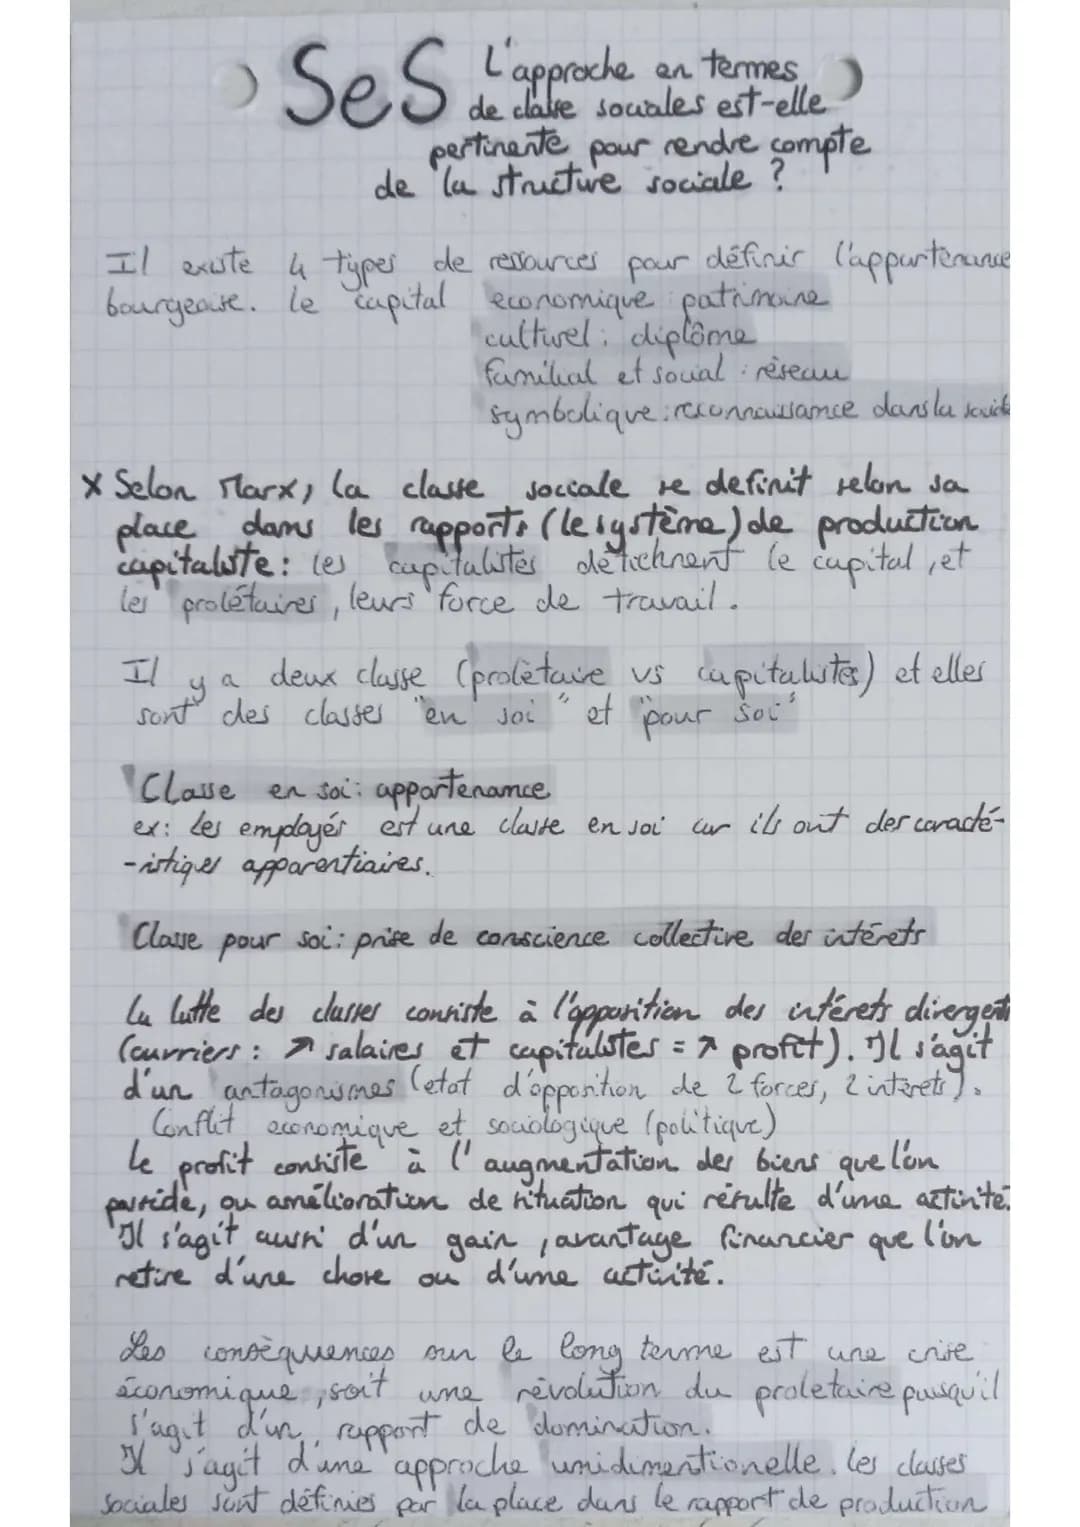 SeS L'approche en termes
de classe sociales est-elle
pertinente pour rendre compte
de la structure sociale ?
Il existe 4 types de ressources pour définir l'appartenance
bourgeoise. Le capital economique : patrimoine
culturel : diplôme
familial et social : réseau
symbolique : reconnaissance dans la société
X Selon Marx, la classe sociale se definit selon sa
place dans les rapports (le système) de production
capitaliste : les capitalistes détiennent le capital, et
les prolétaires, leurs force de travail.
Il y a deux classe (prolètaire vs capitalistes) et elles
sont des classes "en soi" et "pour soi"
Classe en soi : appartenance
ex : Les employés est une classe en soi car ils ont des caracté-
-istiques apparentiaires.
Classe pour soi : prise de conscience collective des intérets
La lutte des classes consiste à l'opposition des intérets divergents
(ouvriers : ↗ salaires et capitalistes = ↗ profit). Il s'agit
d'un antagonismes (etat d'opposition de 2 forces, 2 intérets).
Conflit economique et sociologique (politique)
Le profit consiste à l'augmentation des biens que l'on
possède, ou amélioration de situation qui résulte d'une activité.
Il s'agit aussi d'un gain, avantage financier que l'on
retire d'une chose ou d'une activité.
Les conséquences sur le long terme est une crise
économique, soit une révolution du proletaire puisqu'il
s'agit d'un rapport de domination.
Il s'agit d'une approche unidimentionelle. Les classes
sociales sont définies par la place dans le rapport de production